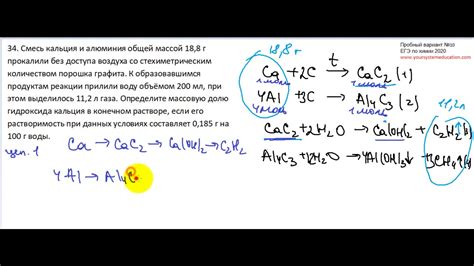 Пробный вариант №10
ЕГЭ по химии 2020
www.yoursystemeducation.com
34. Смесь кальция и алюминия общей массой 18,8 г
прокалили без доступа воздуха со стехиометрическим
количеством порошка графита. К образовавшимся
продуктам реакции прилили воду объёмом 200 мл, при
этом выделилось 11,2 л газа. Определите массовую долю
гидроксида кальция в конечном растворе, если его
растворимость при данных условиях составляет 0,185 г на
100 г воды.
18,8 г
t
Ca + 2C → CaC2 (1)
1 моль 1 моль
4Al + 3C → Al4C3 (2)
4 моль 1 моль
11,2 л
CaC2 + 2H2O → Ca(OH)2 + C2H2↑
Al4C3 + 12H2O → 4Al(OH)3↓ + 3CH4↑
Ca → CaC2 → Ca(OH)2 → C2H2
4Al → Al4C